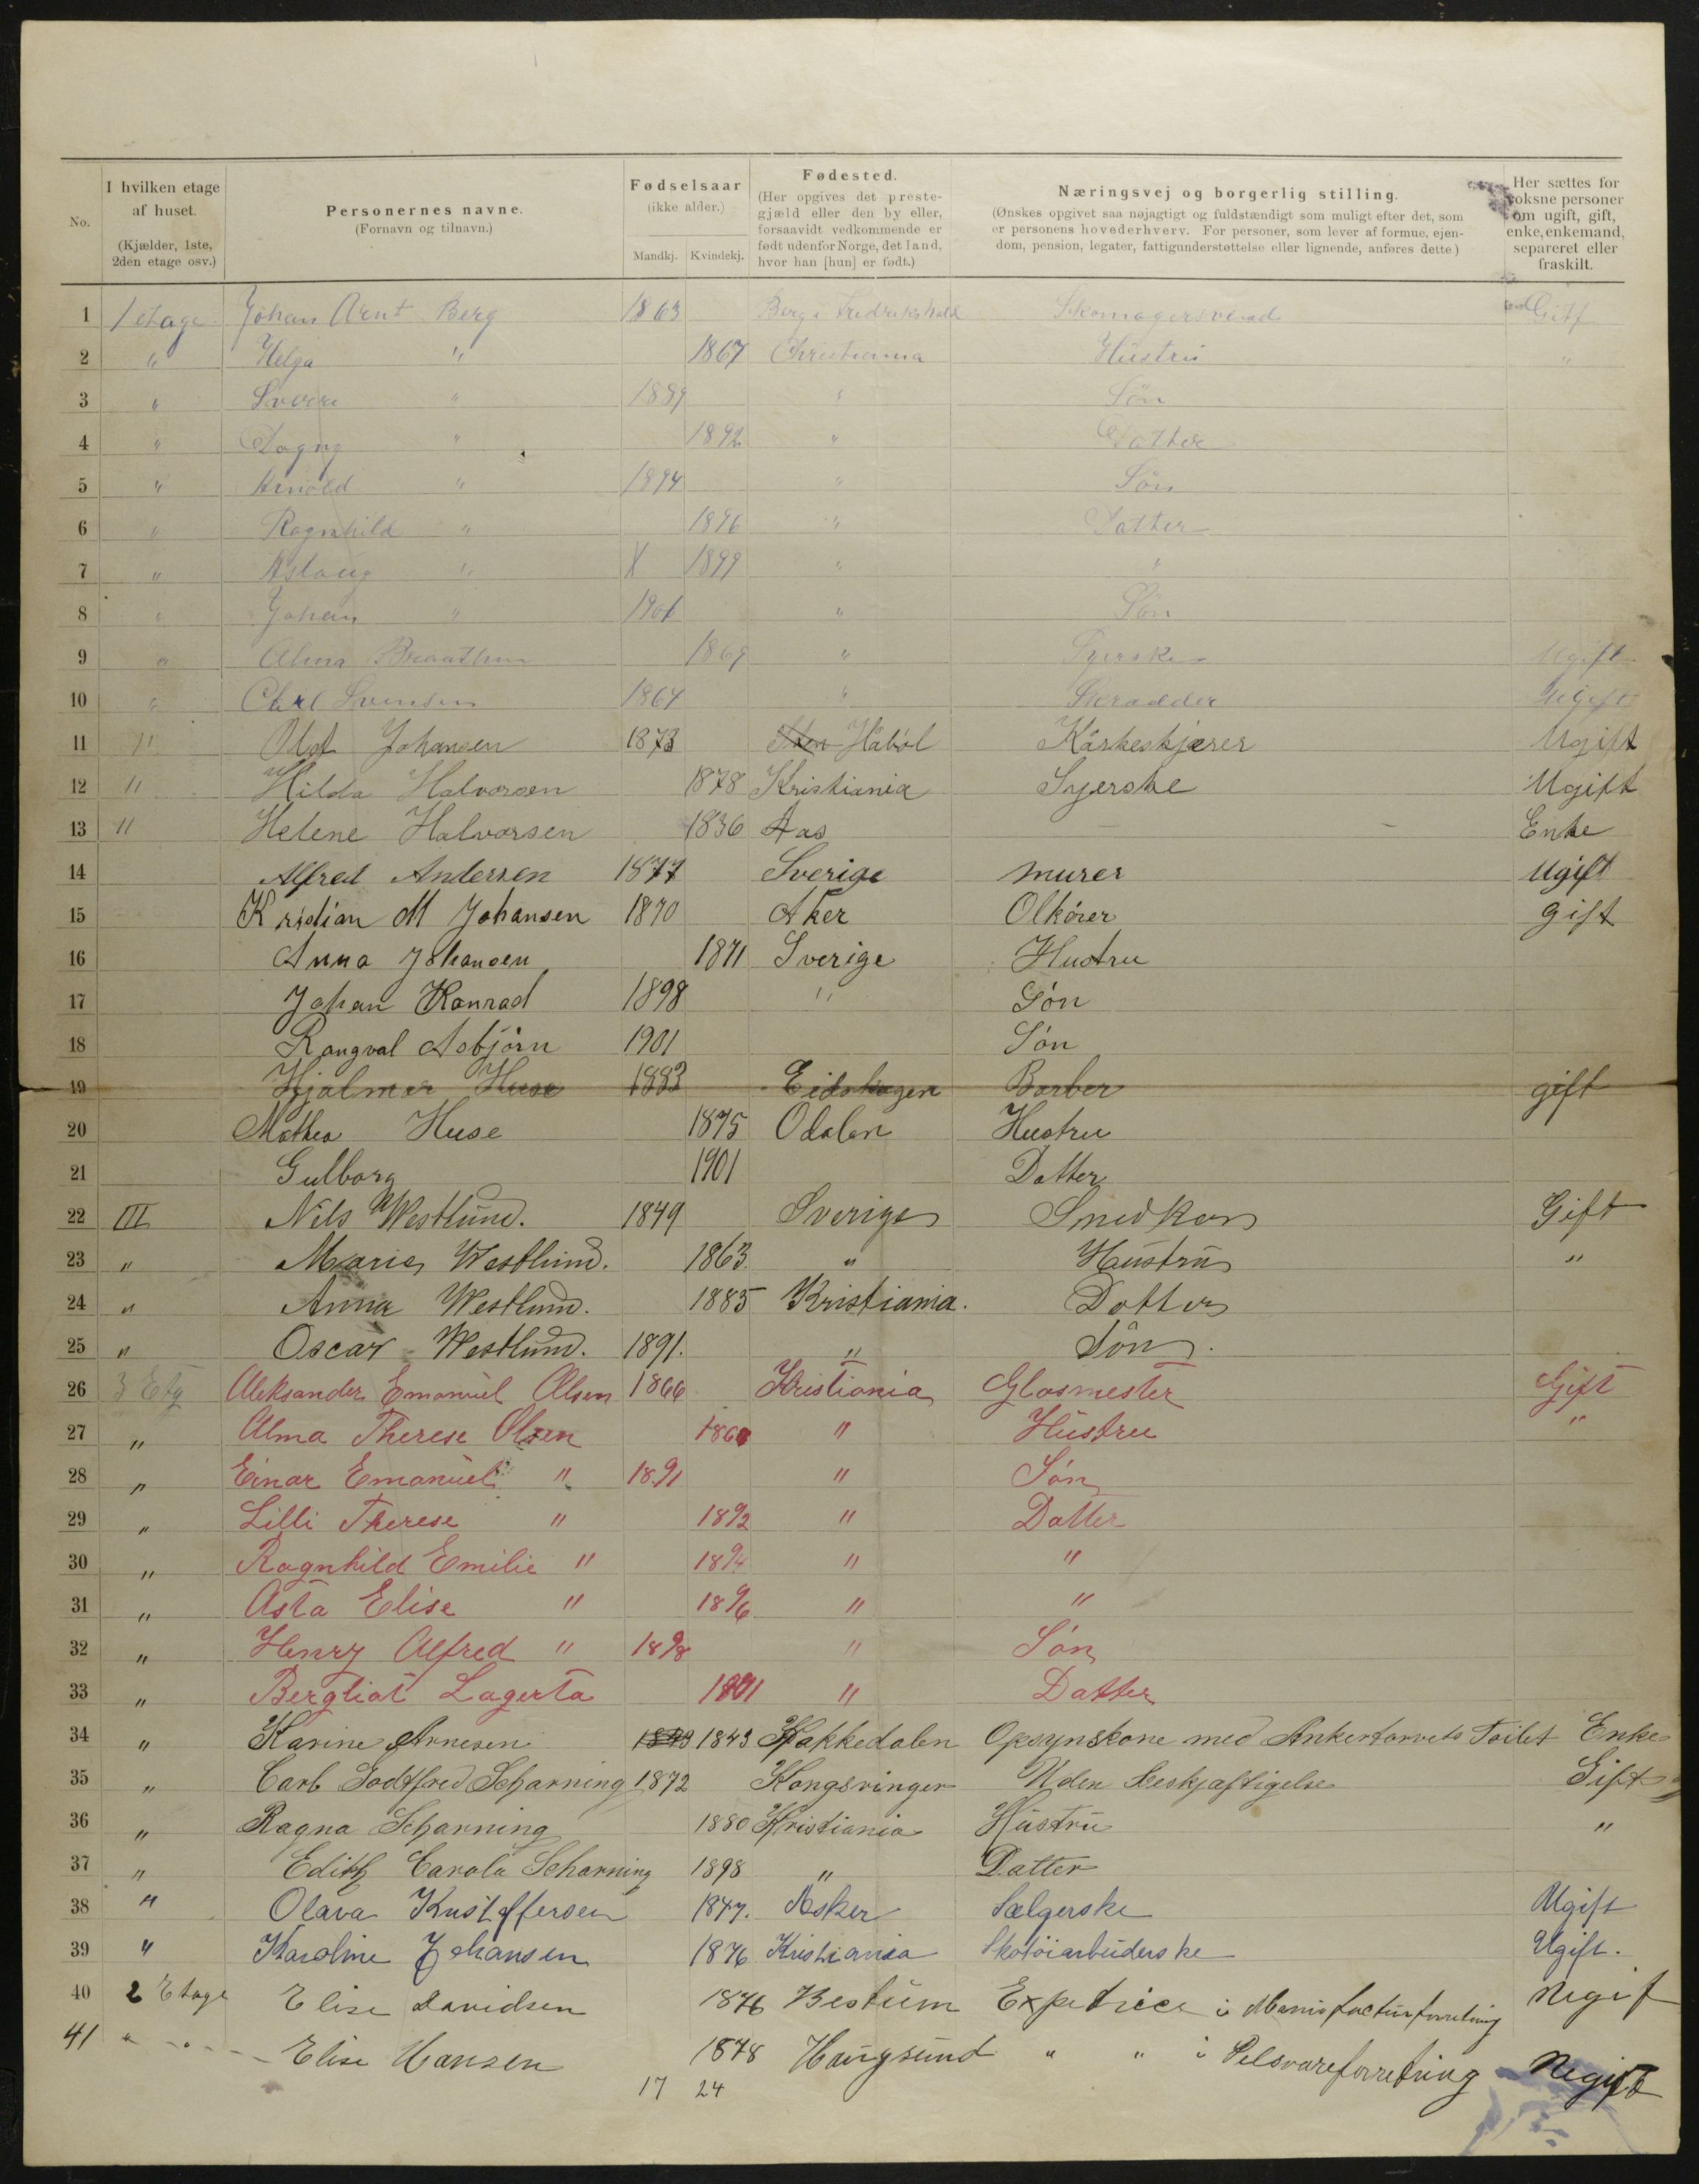 No. I hvilken etage af huset. (Kjælder, 1ste, 2den etage osv.) Personernes navne. (Fornavn og tilnavn.) Fødselsaar (ikke alder.) Mandkj. Kvindekj. Fødested. (Her opgives det prestegjæld eller den by eller, forsaavidt vedkommende er født udenfor Norge, det land, hvor han [hun] er født.) Næringsvej og borgerlig stilling. (Ønskes opgivet saa nøjagtigt og fuldstændigt som muligt efter det, som er personens hovederhverv. For personer, som lever af formue, ejendom, pension, legater, fattigunderstøttelse eller lignende, anføres dette) Her sættes for voksne personer om ugift, gift, enke, enkemand, separeret eller fraskilt.
1 1 etage Johan Arnt Berg 1863 Berg i Fredrikshald Skomagersvend Gift
2 " Helga " 1867 Christiania Hustru "
3 " Sverre " 1889 " Søn
4 " Dagny " 1892 " Datter
5 " Arnold " 1894 " Søn
6 " Ragnhild " 1896 " Datter
7 " Aslaug " X 1899 " "
8 " Johan " 1901 " Søn
9 " Alma Braathen 1869 " Syerske Ugift
10 " Carl Svendsen 1864 " Skrædder Ugift
11 " Olaf Johansen 1873 Håbøl Karskeskjærer Ugift
12 " Hilda Halvorsen 1878 Kristiania Syerske Ugift
13 " Helene Halvorsen 1836 Aas — Enke
14 Alfred Andersen 1877 Sverige murer Ugift
15 Kristian M Johansen 1870 Aker Ølkører gift
16 Anna Johansen 1871 Sverige Hustru
17 Johan Konrad 1898 " Søn
18 Rangval Asbjørn 1901 Søn
19 Hjalmar Huse 1883 Eidskogen Barber gift
20 Mathea Huse 1875 Odalen Hustru
21 Gulborg 1901 Datter
22 III Nils Westlund. 1849 Sverige Smedkar Gift
23 " Marie Westlund. 1863. " Hustru "
24 " Anna Westlund. 1885 Kristiania. Datter
25 " Oscar Westlund. 1891. " Søn.
26 3 Etg Aleksander Emanuel Olsen 1866 Kristiania Glasmester Gift
27 " Alma Therese Olsen 1868 " Hustru "
28 " Einar Emanuel " 1891 " Søn
29 " Lilli Therese " 1892 " Datter
30 " Ragnhild Emilie " 1894 " "
31 " Asta Elise " 1896 " "
32 " Henry Alfred " 1898 " Søn
33 " Bergliot Lagerta 1901 " Datter
34 " Karine Arnesen 1843 1843 Hakkedalen Opsynskone med Ankertorvets Toilet Enke
35 " Carl Godtfred Scharning 1872 Kongsvinger Uden Beskjæftigelse Gift
36 " Ragna Scharning 1880 Kristiania Hustru "
37 " Edith Carola Scharning 1898 " Datter
38 " Olava Kristoffersen 1847. Asker Sælgerske Ugift
39 " Karoline Johansen 1876 Kristiania Skotøiarbeiderske Ugift.
40 2 Etage Elise Davidsen 1876 Bestum Expetrice i Manufacturforretning Ugif
41 " " Elise Hansen 1878 Haugsund " " i Pelsvareforretning Ugift
17 24